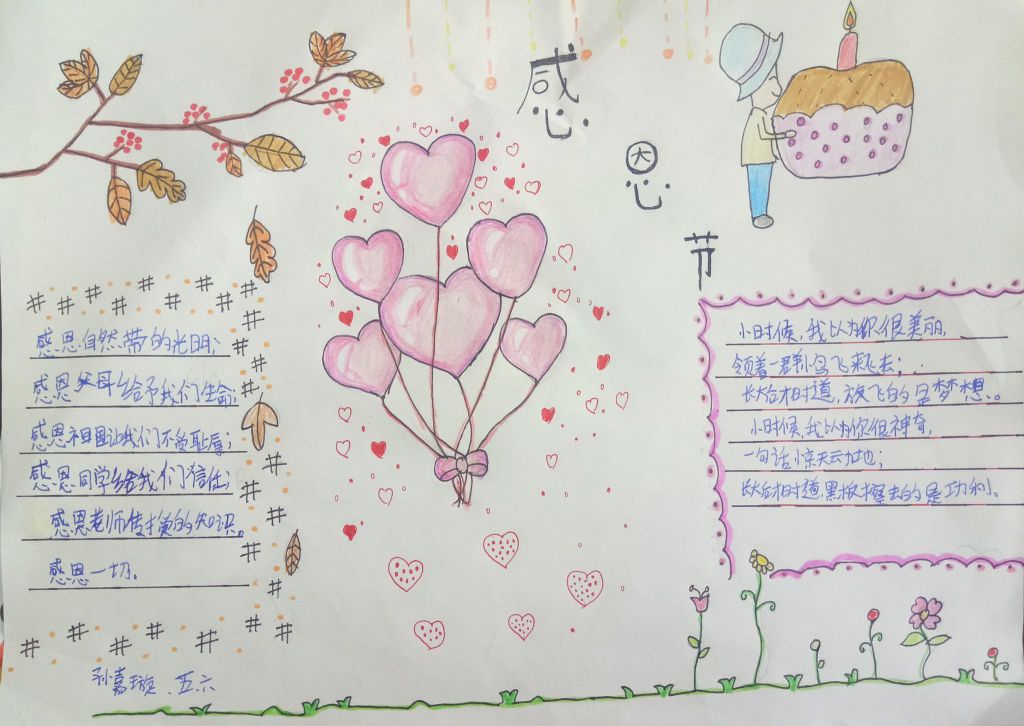 感恩节
感恩自然带的光明;
感恩父母给予我们生命;
感恩祖国让我们不受耻辱;
感恩同学给我们信任;
感恩老师传授的知识。
感恩一切。
孙嘉璇.五六
小时候,我以为你很美丽,
领着一群小鸟飞来飞去;
长大后才知道,放飞的是梦想。
小时候,我以为你很神奇,
一句话惊天动地;
长大后才知道,黑板擦去的是功利。